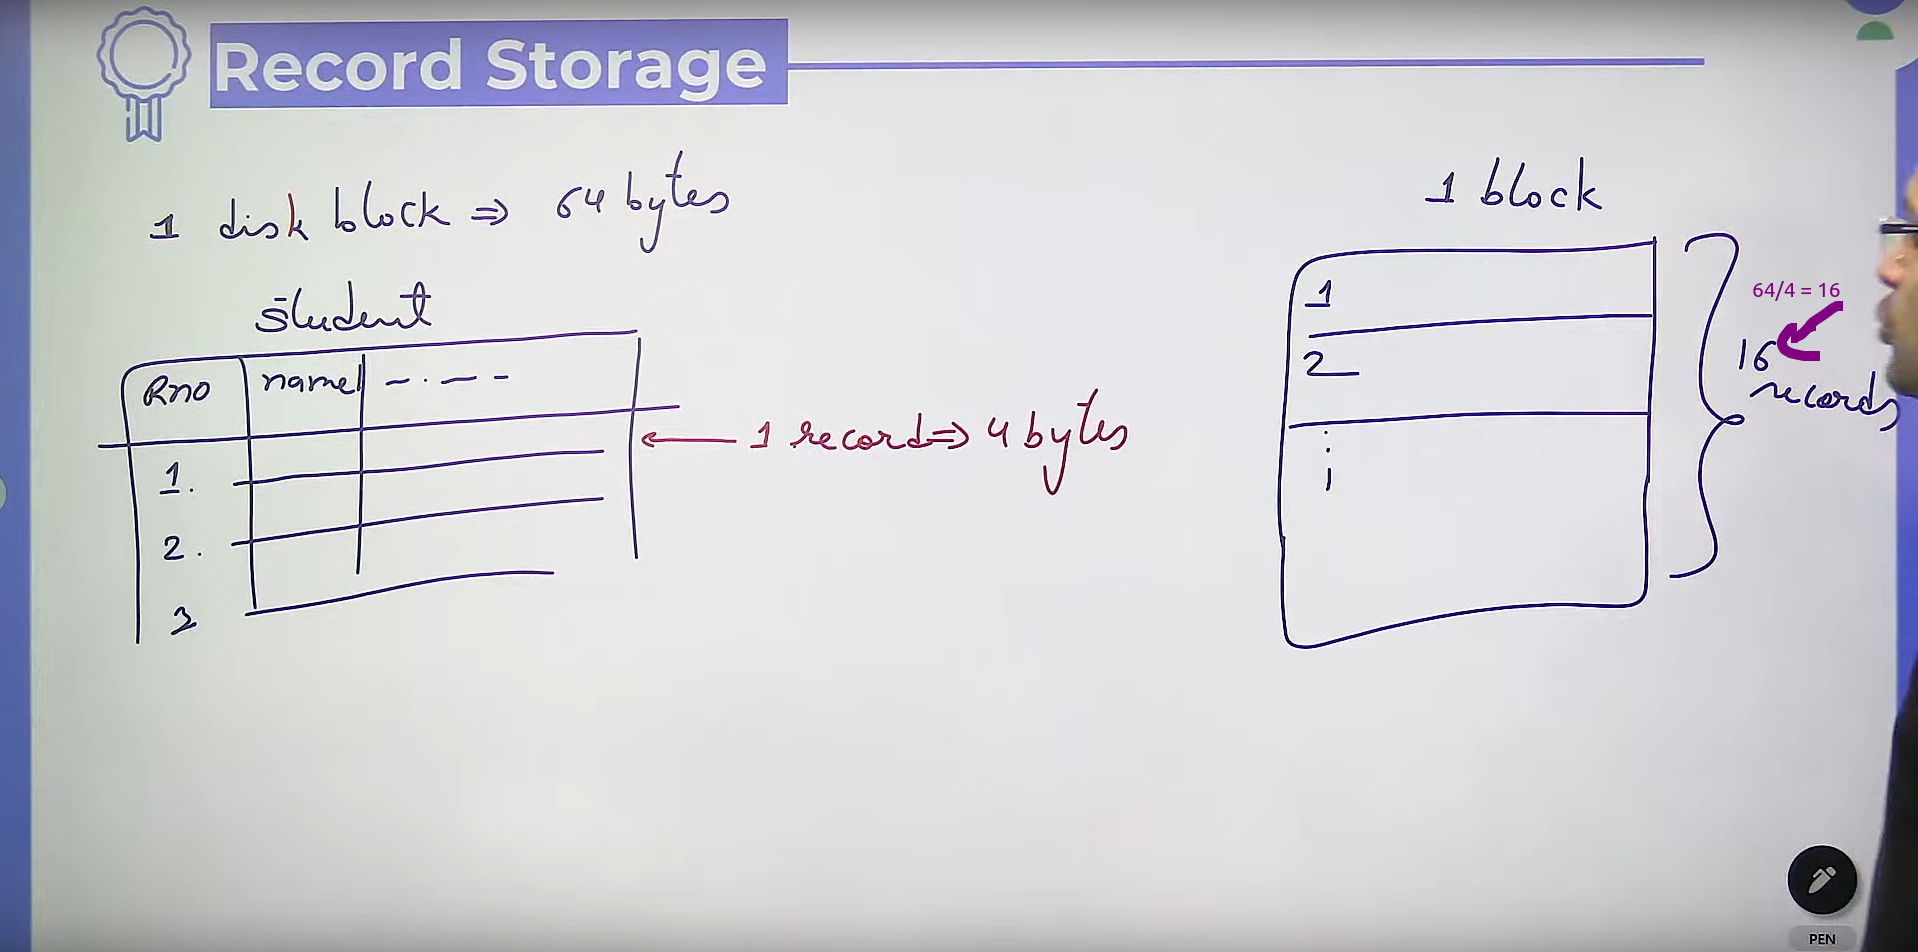 Record Storage
1 disk block ⇒ 64 bytes
student
Rno name - . - - -
1.
2.
3
← 1 record ⇒ 4 bytes
1 block
1
2
64/4 = 16
16
records
PEN